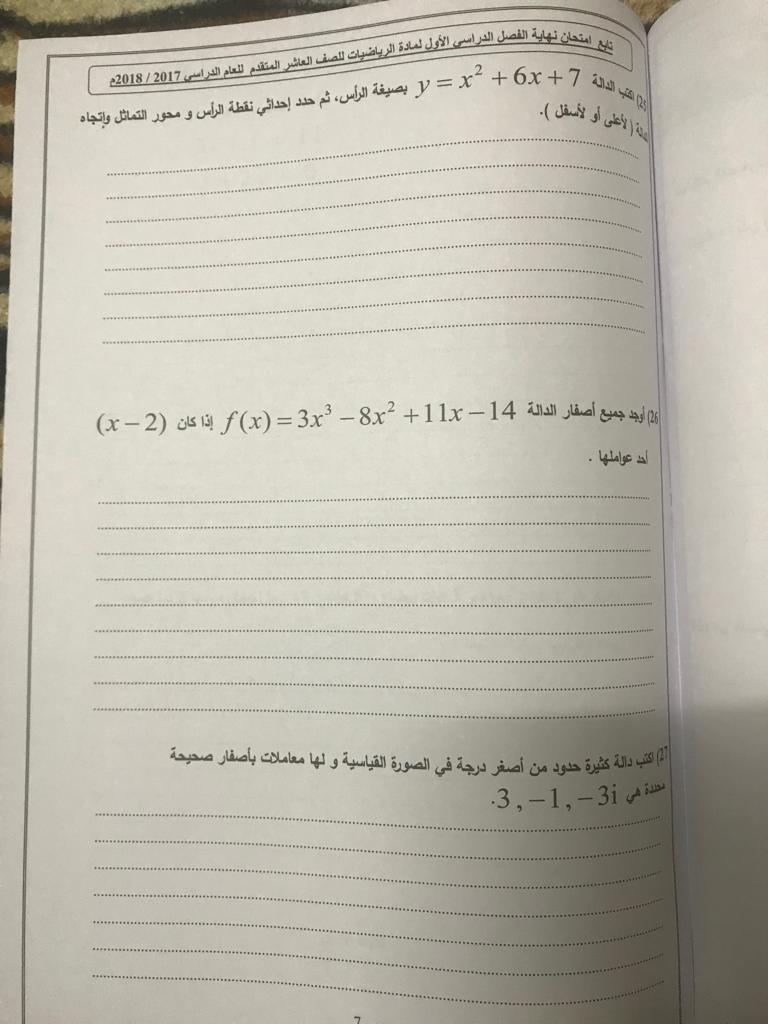 تابع امتحان نهاية الفصل الدراسي الأول لمادة الرياضيات للصف العاشر المتقدم للعام الدراسي 2017 / 2018م
25) اكتب الدالة y = x² + 6x + 7 بصيغة الرأس، ثم حدد إحداثي نقطة الرأس و محور التماثل وإتجاه
( لأعلى أو لأسفل ).
26) أوجد جميع أصفار الدالة f(x) = 3x³ − 8x² + 11x − 14 إذا كان (x − 2)
أحد عواملها .
27) اكتب دالة كثيرة حدود من أصغر درجة في الصورة القياسية و لها معاملات بأصفار صحيحة
محددة هي 3 , −1 , −3i.
7